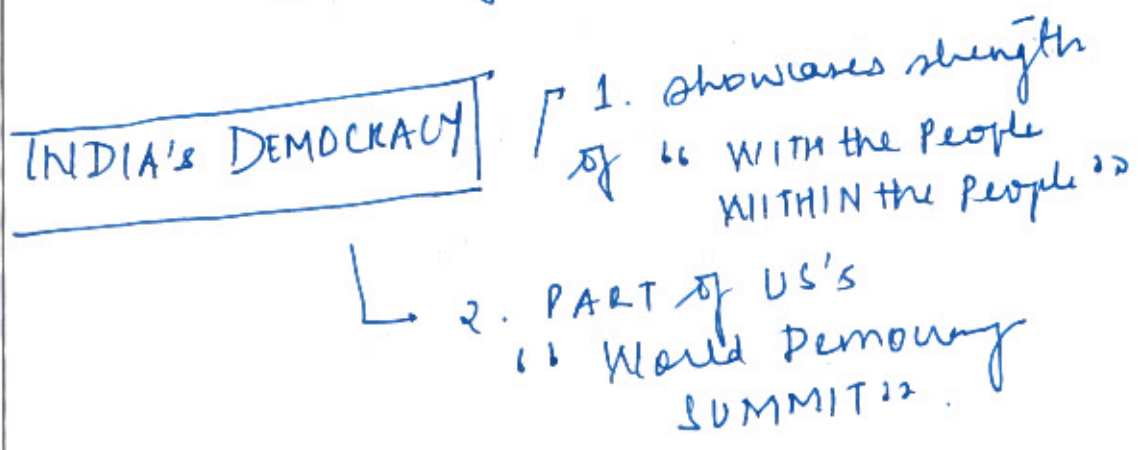 INDIA's DEMOCRACY
1. showcases strength
of "WITH the People
WITHIN the People"
2. PART of US's
"World Democracy
SUMMIT".